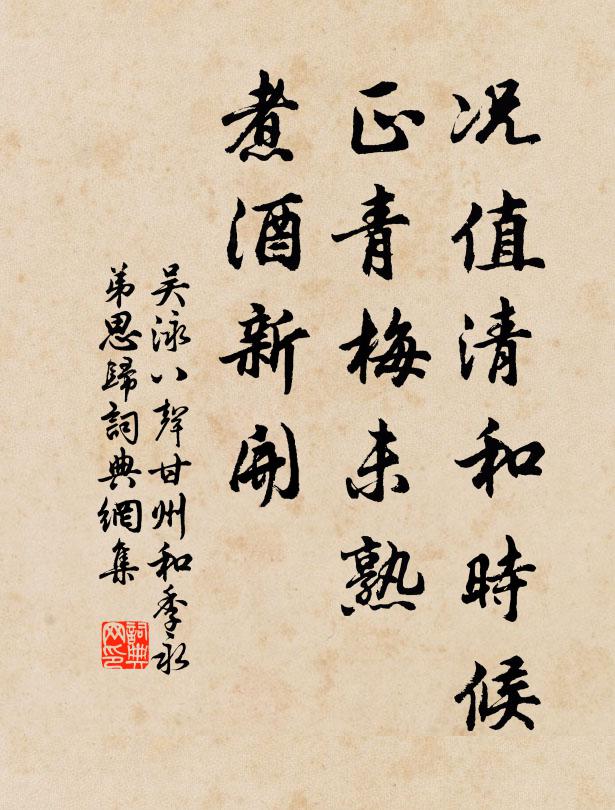 况值清和時候
正青梅未熟
煮酒新開
吴泳八聲甘州和季永
弟思歸詞典網集
詞典網印